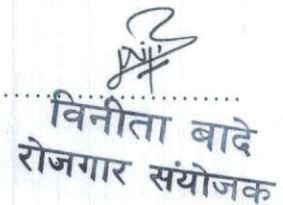 विनीता बादे
रोजगार संयोजक